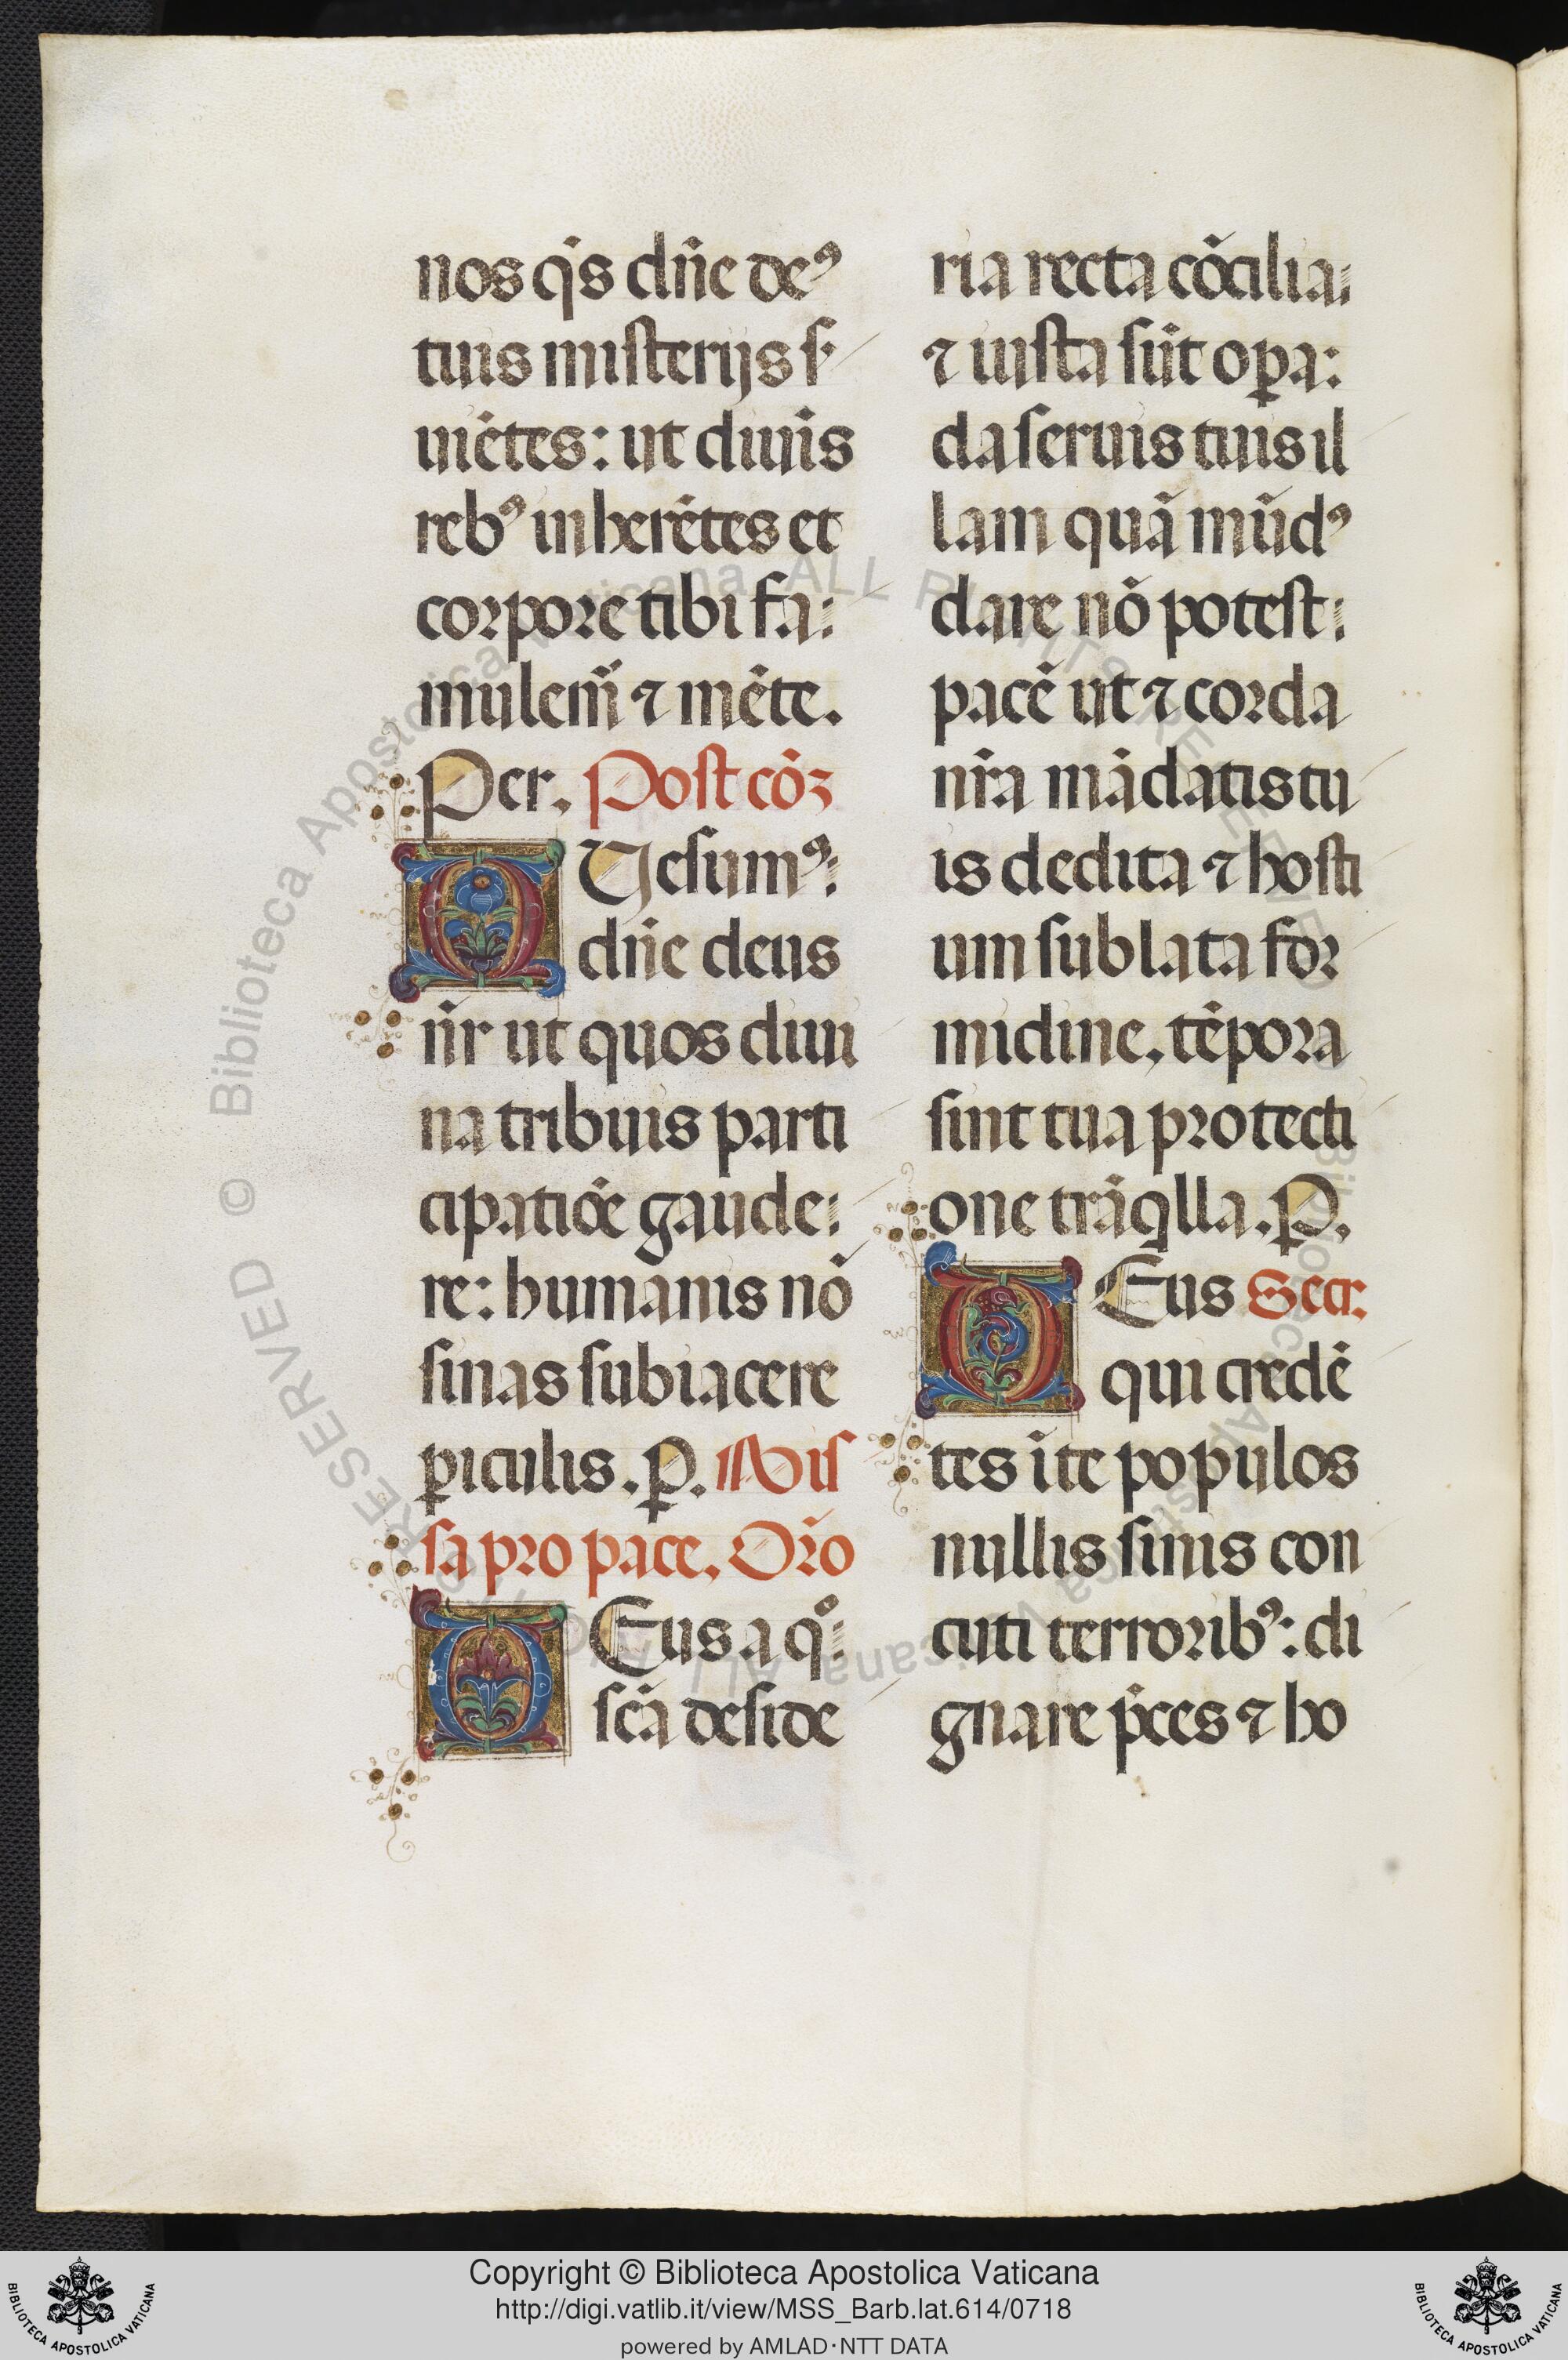 nos q̇s dn̄e deꝰ
tuis misterijs s·
uiētes: ut diuīs
rebꝰ inherētes et
corpore tibi fa:
mulem̄ ⁊ mēte.
Per. Post cōꝫ
QVesumꝰ:
dn̄e deus
nr̄ ut quos diui
na tribuis parti
cipatiōe gaude:
re: humanis nō
sinas subiacere
ꝑiculis. ꝑ. Mis
sa pro pace. Or̄o
DEus a qͦ:
sc̄a deside
ria recta cōcilia:
⁊ iusta sūt oꝑa:
da seruis tuis il
lam quā mūdꝰ
dare nō potest:
pacē ut ⁊ corda
nr̄a mādatis tu
is dedita ⁊ hosti
um sublata for
midine, tēpora
sint tua protecti
one trāqlla. ꝑ.
DEus Secr.
qui credē
tes ī te populos
nullis sinis con
cuti terroribꝰ: di
gnare p̄ces ⁊ ho
© Biblioteca Apostolica Vaticana ALL RIGHTS RESERVED
© Biblioteca Apostolica Vaticana ALL RIGHTS RESERVED
BIBLIOTECA APOSTOLICA VATICANA
Copyright © Biblioteca Apostolica Vaticana
http://digi.vatlib.it/view/MSS_Barb.lat.614/0718
powered by AMLAD·NTT DATA
BIBLIOTECA APOSTOLICA VATICANA